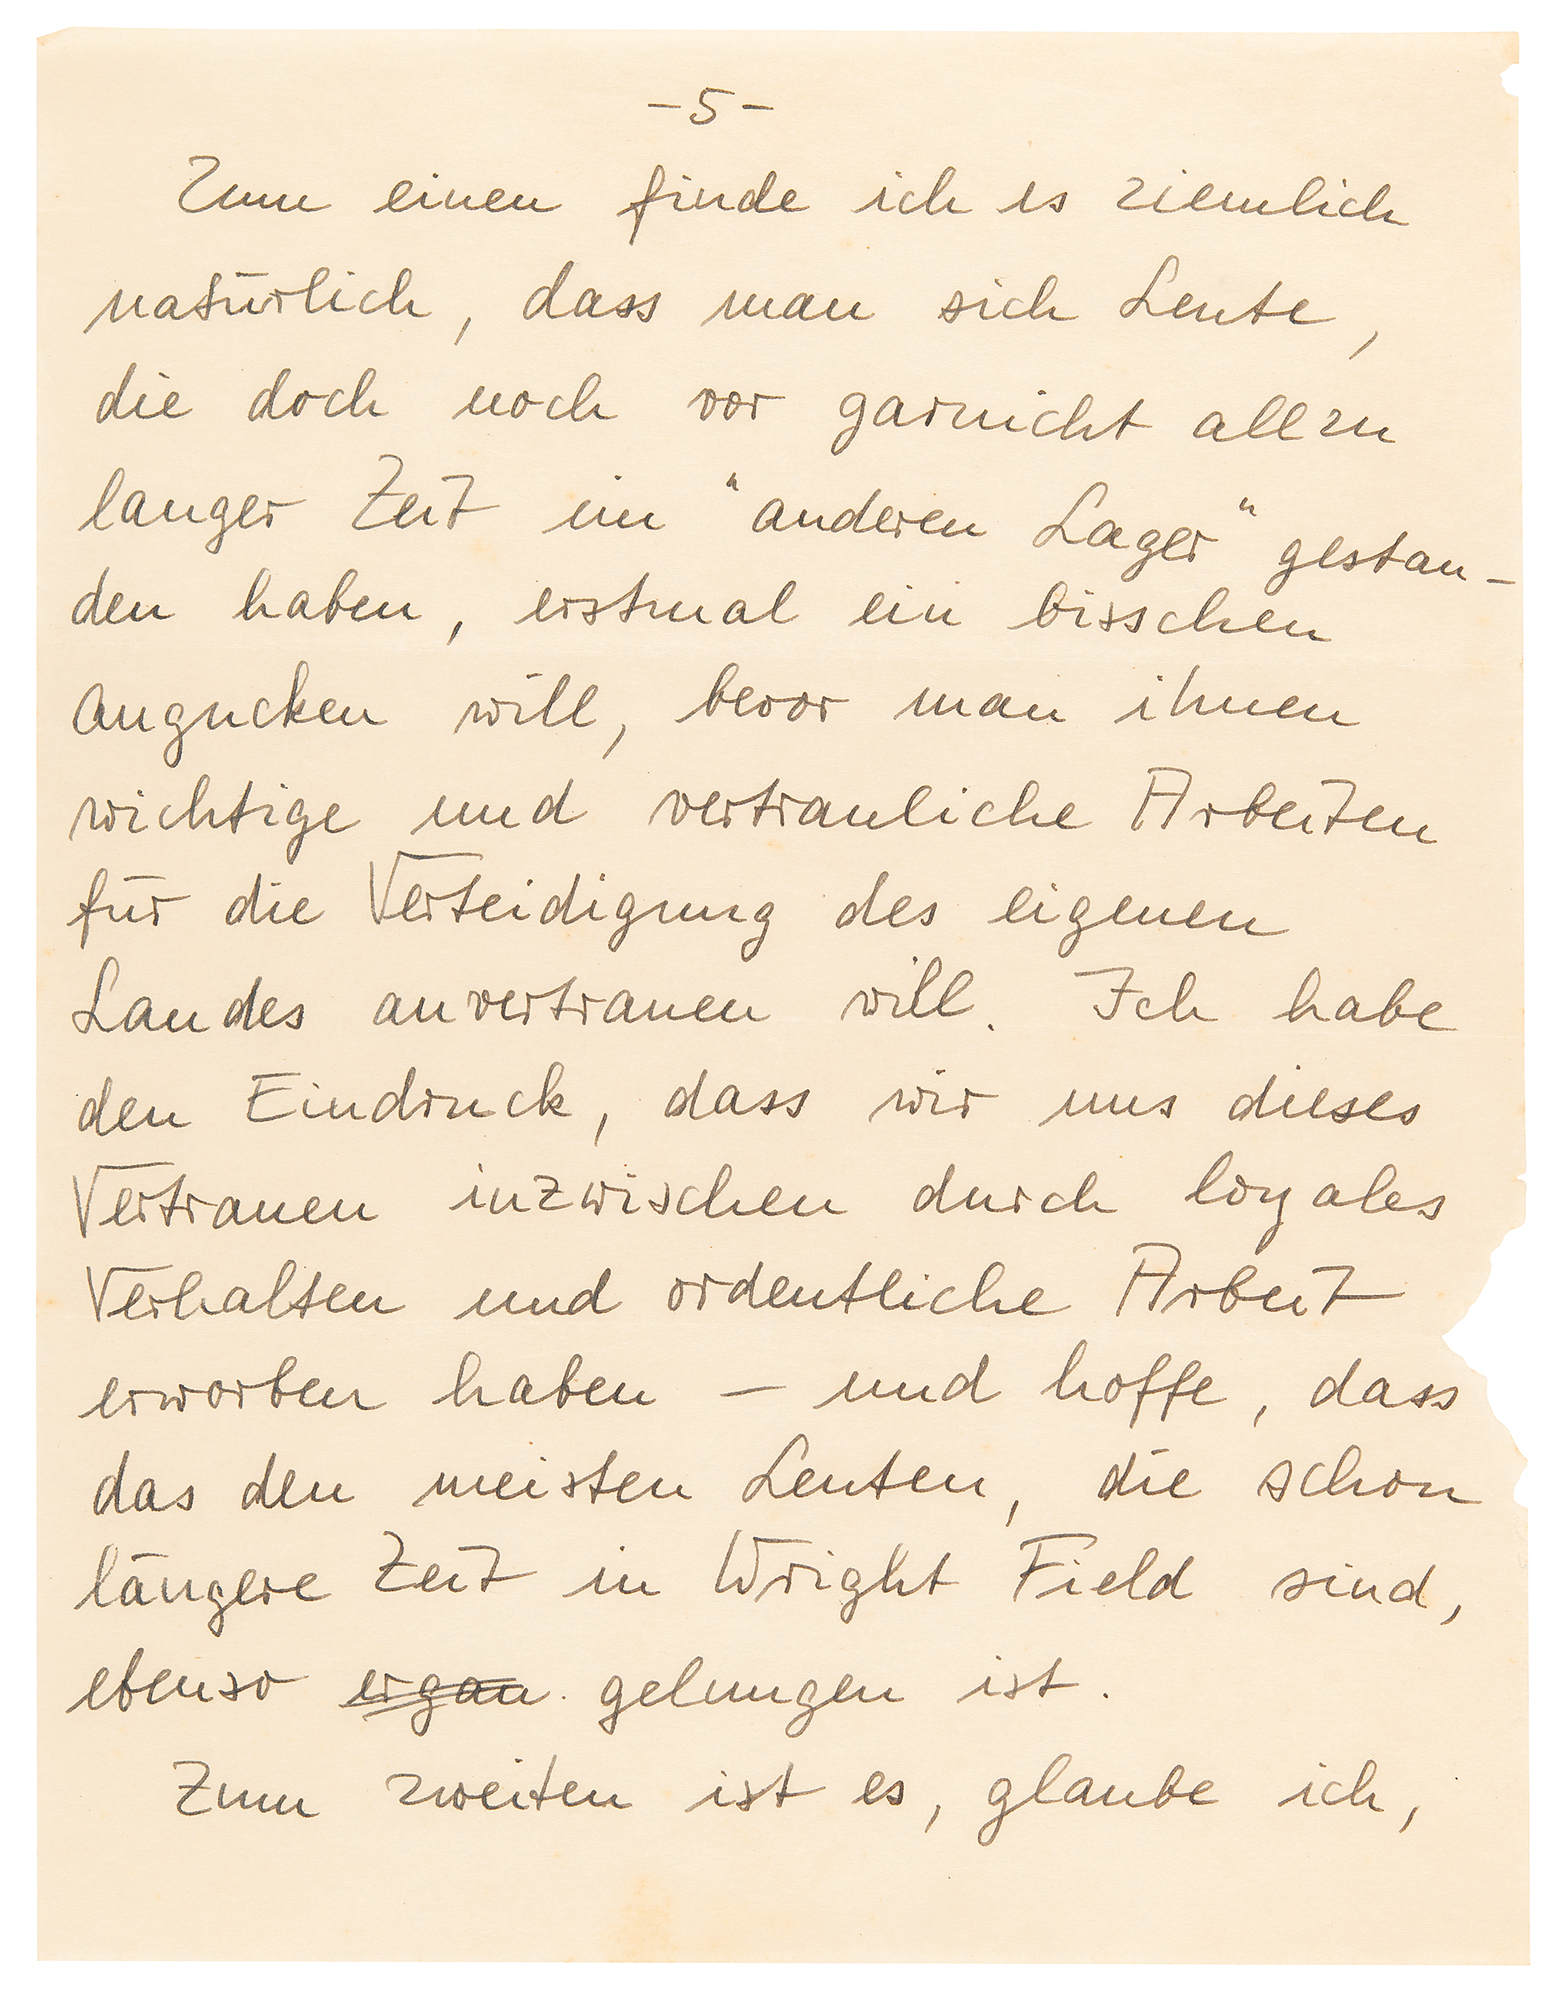 -5-
Zum einen finde ich es ziemlich
natürlich, dass man sich Leute,
die doch noch vor garnicht allzu
langer Zeit im "anderen Lager" gestan-
den haben, erstmal ein bisschen
angucken will, bevor man ihnen
wichtige und vertrauliche Arbeiten
für die Verteidigung des eigenen
Landes anvertrauen will. Ich habe
den Eindruck, dass wir uns dieses
Vertrauen inzwischen durch loyales
Verhalten und ordentliche Arbeit
erworben haben — und hoffe, dass
das den meisten Leuten, die schon
längere Zeit in Wright Field sind,
ebenso ergan. gelungen ist.
Zum zweiten ist es, glaube ich,